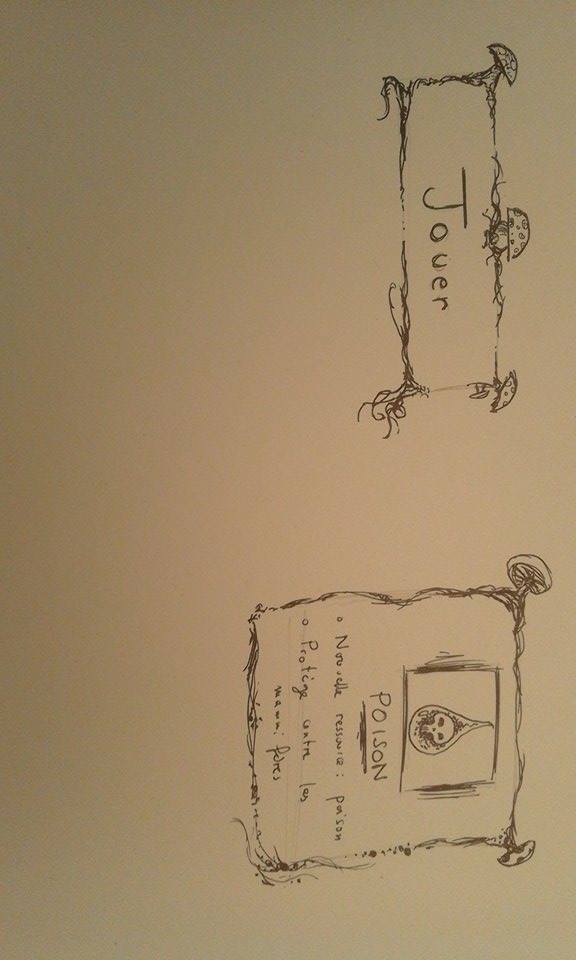 Jouer
POISON
o Nouvelle ressource : poison
o Protège contre les
mammifères